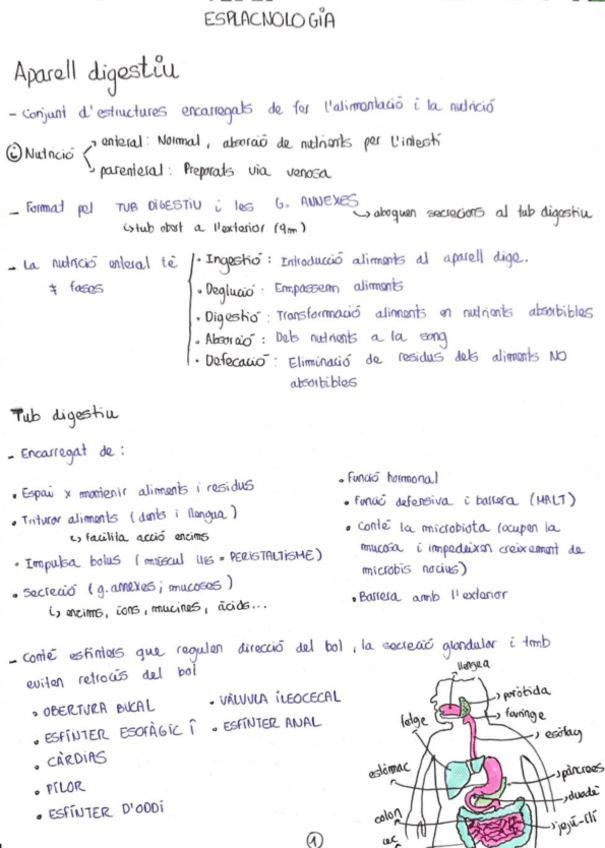 ESPLACNOLOGÍA
Aparell digestiu
- Conjunt d'estructures encarregats de fer l'alimentació i la nutrició
Nutrició
enteral: Normal, absorció de nutrients per l'intestí
parenteral: Preparats via venosa
- Format pel TUB DIGESTIU i les G. ANNEXES
aboquen secrecions al tub digestiu
tub obert a l'exterior (9m)
- La nutrició enteral té
≠ fases
• Ingestió: Introducció aliments al aparell dige.
• Deglució: Empassem aliments
• Digestió: Transformació aliments en nutrients absorbibles
• Absorció: Dels nutrients a la sang
• Defecació: Eliminació de residus dels aliments NO
absorbibles
Tub digestiu
- Encarregat de:
• Espai x mantenir aliments i residus
• Triturar aliments (dents i llengua)
facilita acció enzims
• Impulsa bolus (múscul llis = PERISTALTISME)
• Secreció (g. annexes; mucoses)
enzims, ions, mucines, àcids...
• Funció hormonal
• Funció defensiva i barrera (MALT)
• Conté la microbiota (ocupen la
mucosa i impedeixen creixement de
microbis nocius)
• Barrera amb l'exterior
- Conté esfínters que regulen direcció del bol, la secreció glandular i tmb
eviten retrocés del bol
• OBERTURA BUCAL
• ESFÍNTER ESOFÀGIC Î
• CÀRDIAS
• PÍLOR
• ESFÍNTER D'ODDI
• VÀLVULA ÍLEOCECAL
• ESFÍNTER ANAL
llengua
paròtida
faringe
esòfag
fetge
estómac
pàncrees
duodè
colon
jejú-íli
cec
1